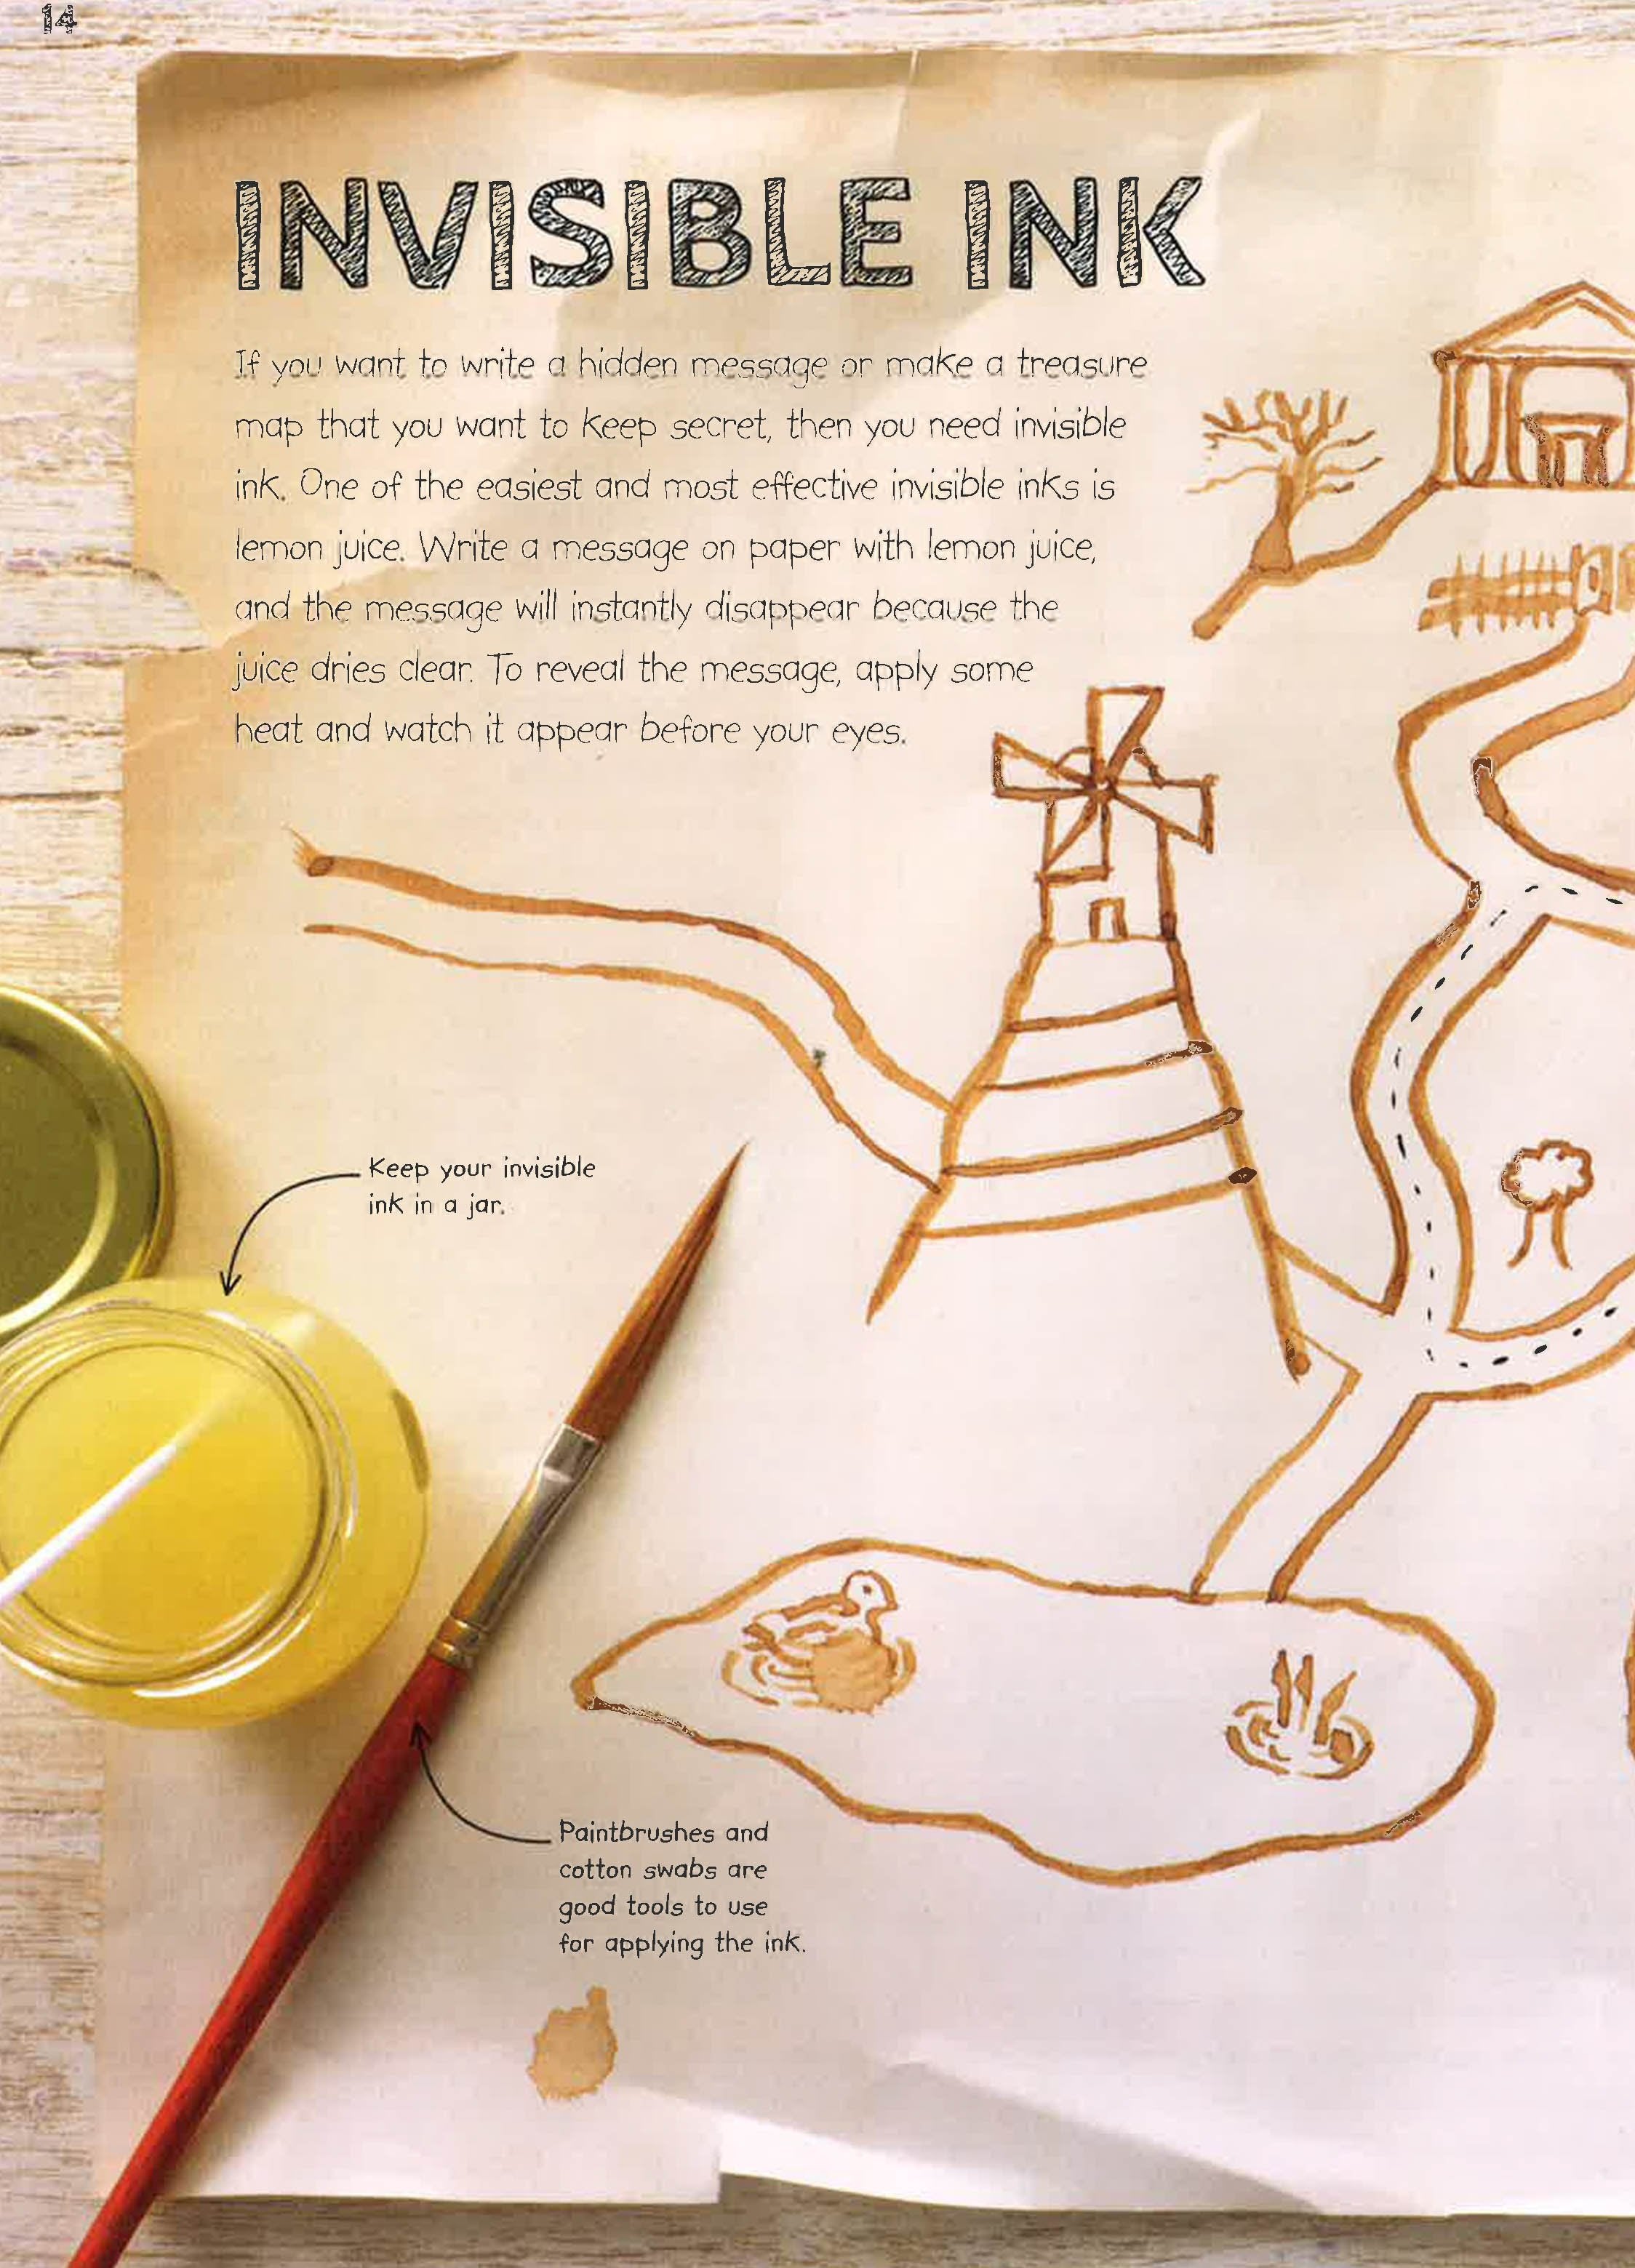 14
INVISIBLE INK
If you want to write a hidden message or make a treasure
map that you want to keep secret, then you need invisible
ink. One of the easiest and most effective invisible inks is
lemon juice. Write a message on paper with lemon juice,
and the message will instantly disappear because the
juice dries clear. To reveal the message, apply some
heat and watch it appear before your eyes.
Keep your invisible
ink in a jar.
Paintbrushes and
cotton swabs are
good tools to use
for applying the ink.